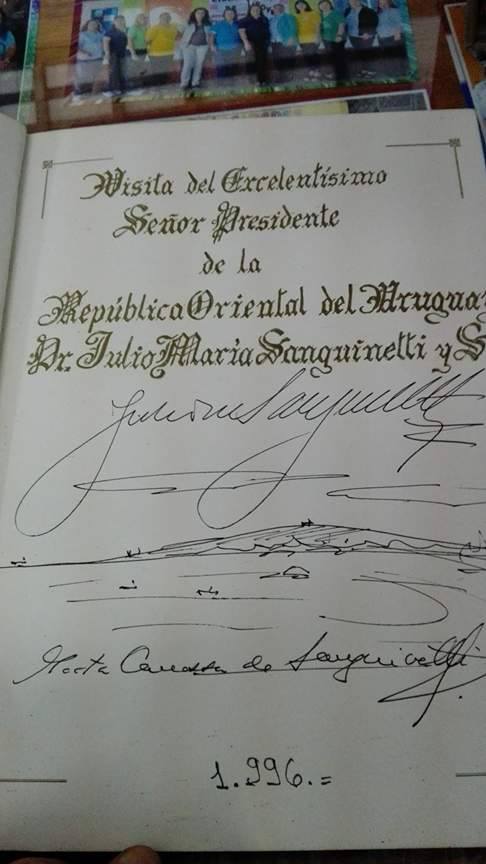 Visita del Excelentísimo
Señor Presidente
de la
República Oriental del Urugua
Dr. Julio María Sanguinetti y S
Julio M Sanguinetti
Marta Canessa de Sanguinetti
1.996.=